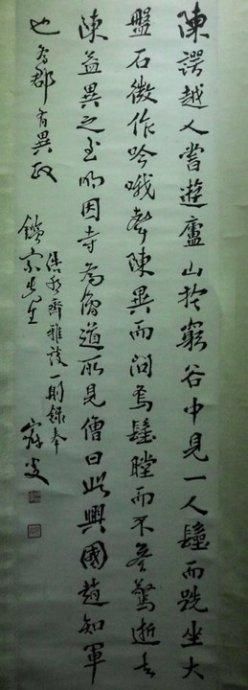 陳諤越人嘗遊廬山於窮谷中見一人而跣坐大
盤石微作吟哦聲陳異而問焉瞠而不答驚逝去
陳益異之至明因寺為僧道所見僧曰此興國趙知軍
也為郡有異政
浩然齋雅談一則錄奉
宗先生
寐叟